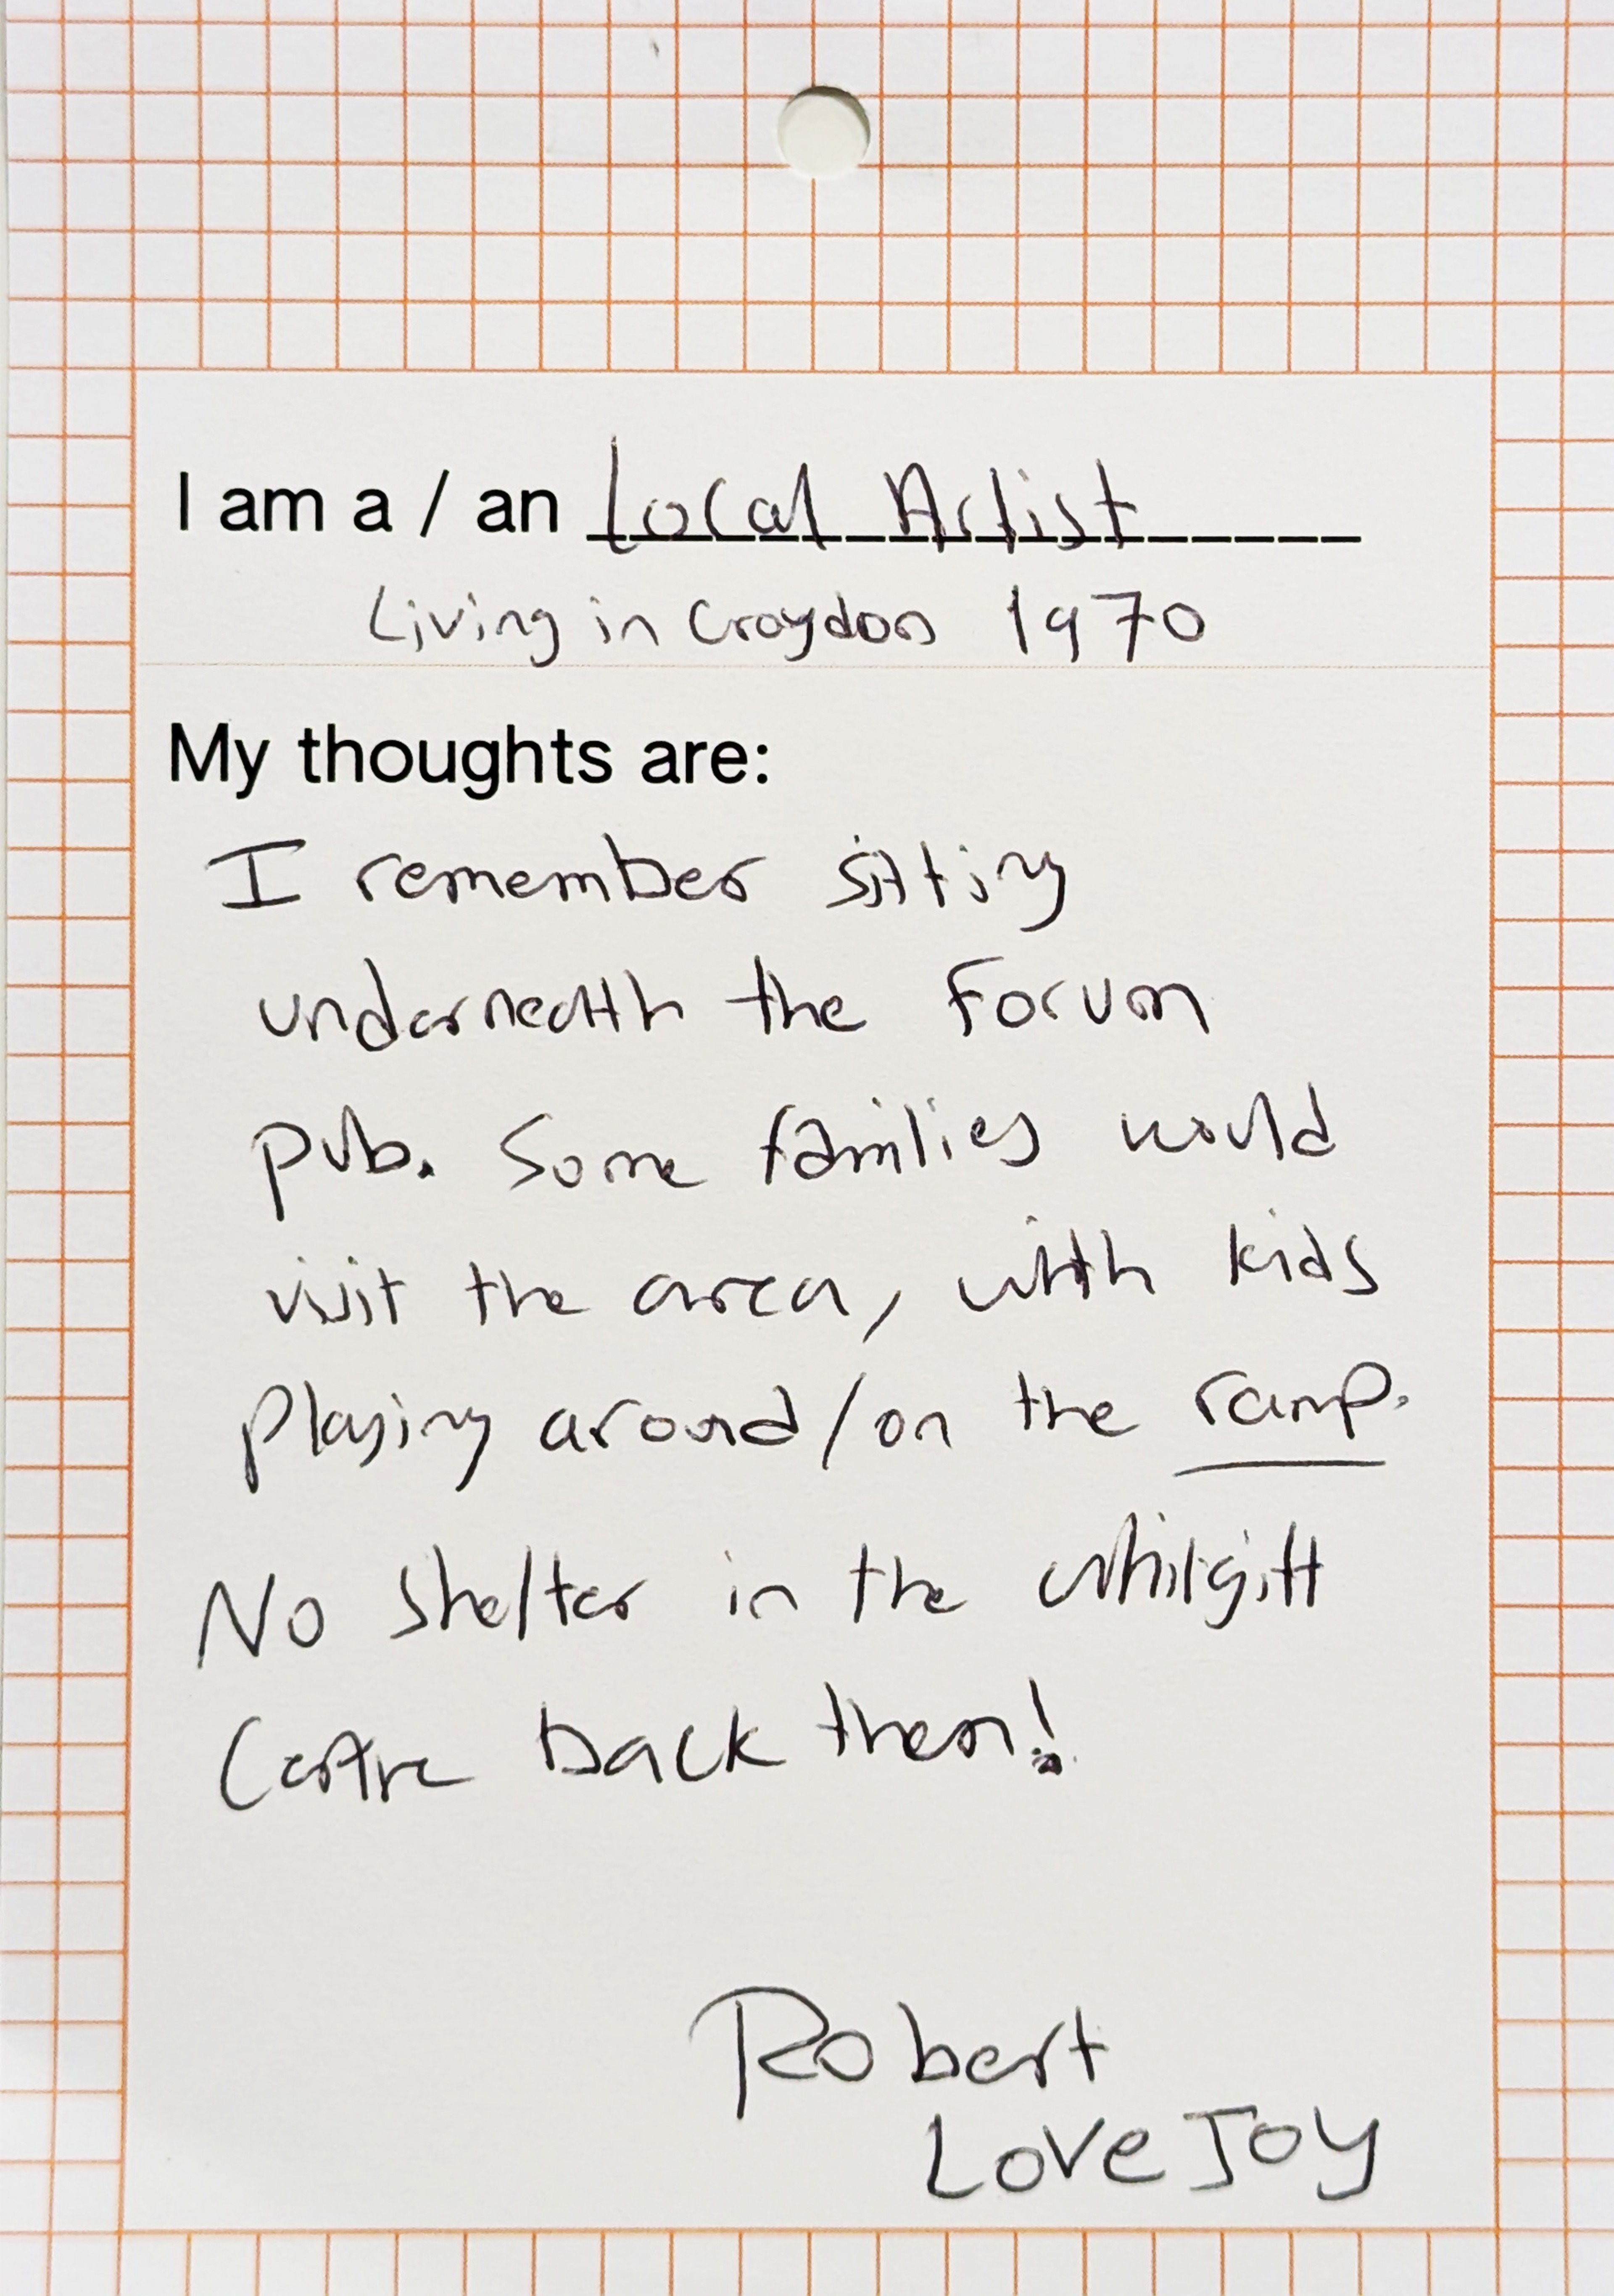 I am a / an Local Artist
Living in Croydon 1970
My thoughts are:
I remember sitting
underneath the Forum
pub. Some families would
visit the area, with kids
playing around/on the ramp.
No shelter in the Whitgift
Centre back then!
Robert
LoveJoy